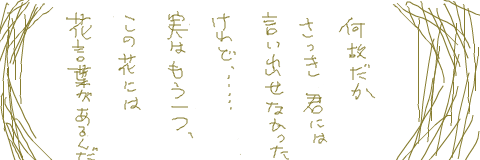 何故だか
さっき 君には
言い出せなかった
けれど、……
実は もう一つ、
この花には
花言葉があるんだ